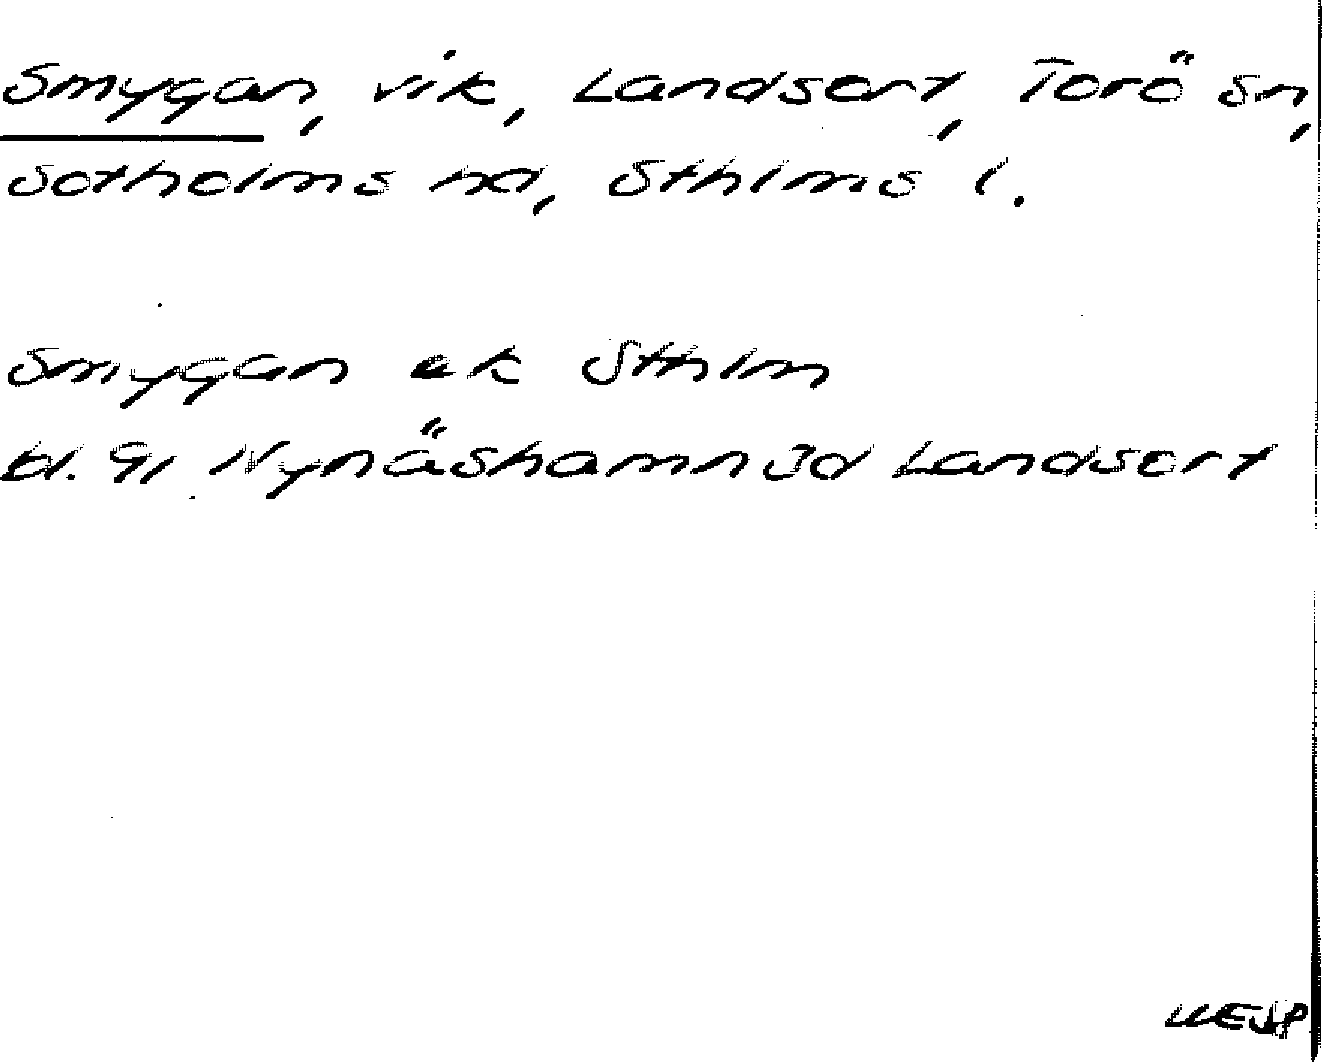 Smygan, vik, Landsort, Torö sn,
Sotholms hd, Sthlms l.
Smygan ek Sthlm
bl. 91 Nynäshamn 3d Landsort